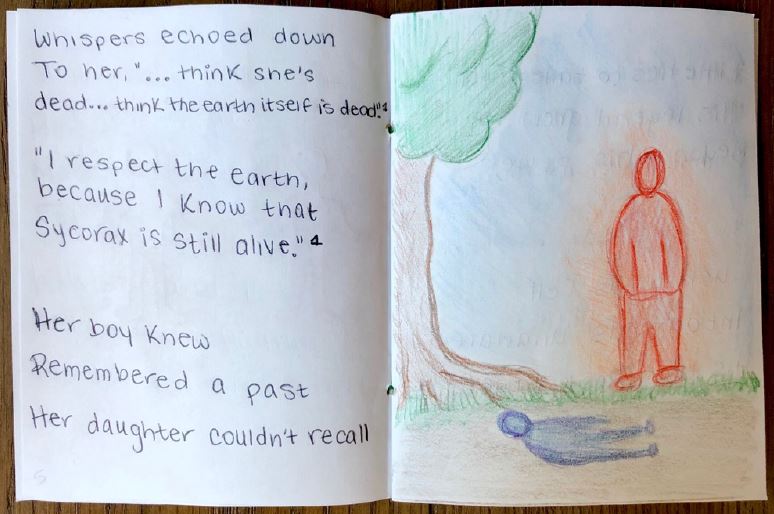 Whispers echoed down
To her, "... think she's
dead... think the earth itself is dead".⁴
"I respect the earth,
because I know that
Sycorax is still alive." 4
Her boy knew
Remembered a past
Her daughter couldn't recall
5